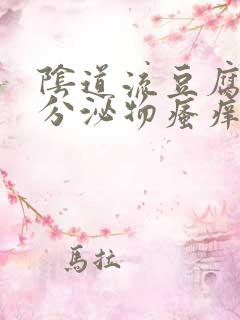 陰道流豆腐
分泌物瘙癢
馬拉